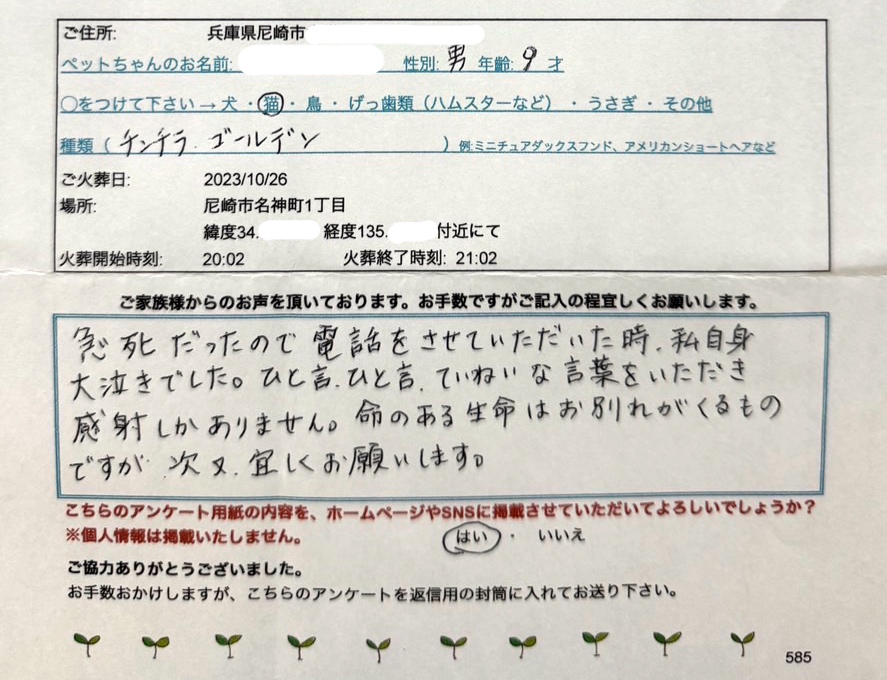 ご住所: 兵庫県尼崎市
ペットちゃんのお名前: 性別: 男 年齢: 9 才
○をつけて下さい→ 犬 ・ 猫 ・ 鳥 ・ げっ歯類（ハムスターなど） ・ うさぎ ・ その他
種類（ チンチラ ゴールデン ）例:ミニチュアダックスフンド、アメリカンショートヘアなど
ご火葬日: 2023/10/26
場所: 尼崎市名神町1丁目
緯度34. 経度135. 付近にて
火葬開始時刻: 20:02 火葬終了時刻: 21:02
ご家族様からのお声を頂いております。お手数ですがご記入の程宜しくお願いします。
急死だったので電話をさせていただいた時、私自身
大泣きでした。ひと言、ひと言、ていねいな言葉をいただき
感射しかありません。命のある生命はお別れがくるもの
ですが 次又、宜しくお願いします。
こちらのアンケート用紙の内容を、ホームページやSNSに掲載させていただいてよろしいでしょうか？
※個人情報は掲載いたしません。 はい ・ いいえ
ご協力ありがとうございました。
お手数おかけしますが、こちらのアンケートを返信用の封筒に入れてお送り下さい。
585